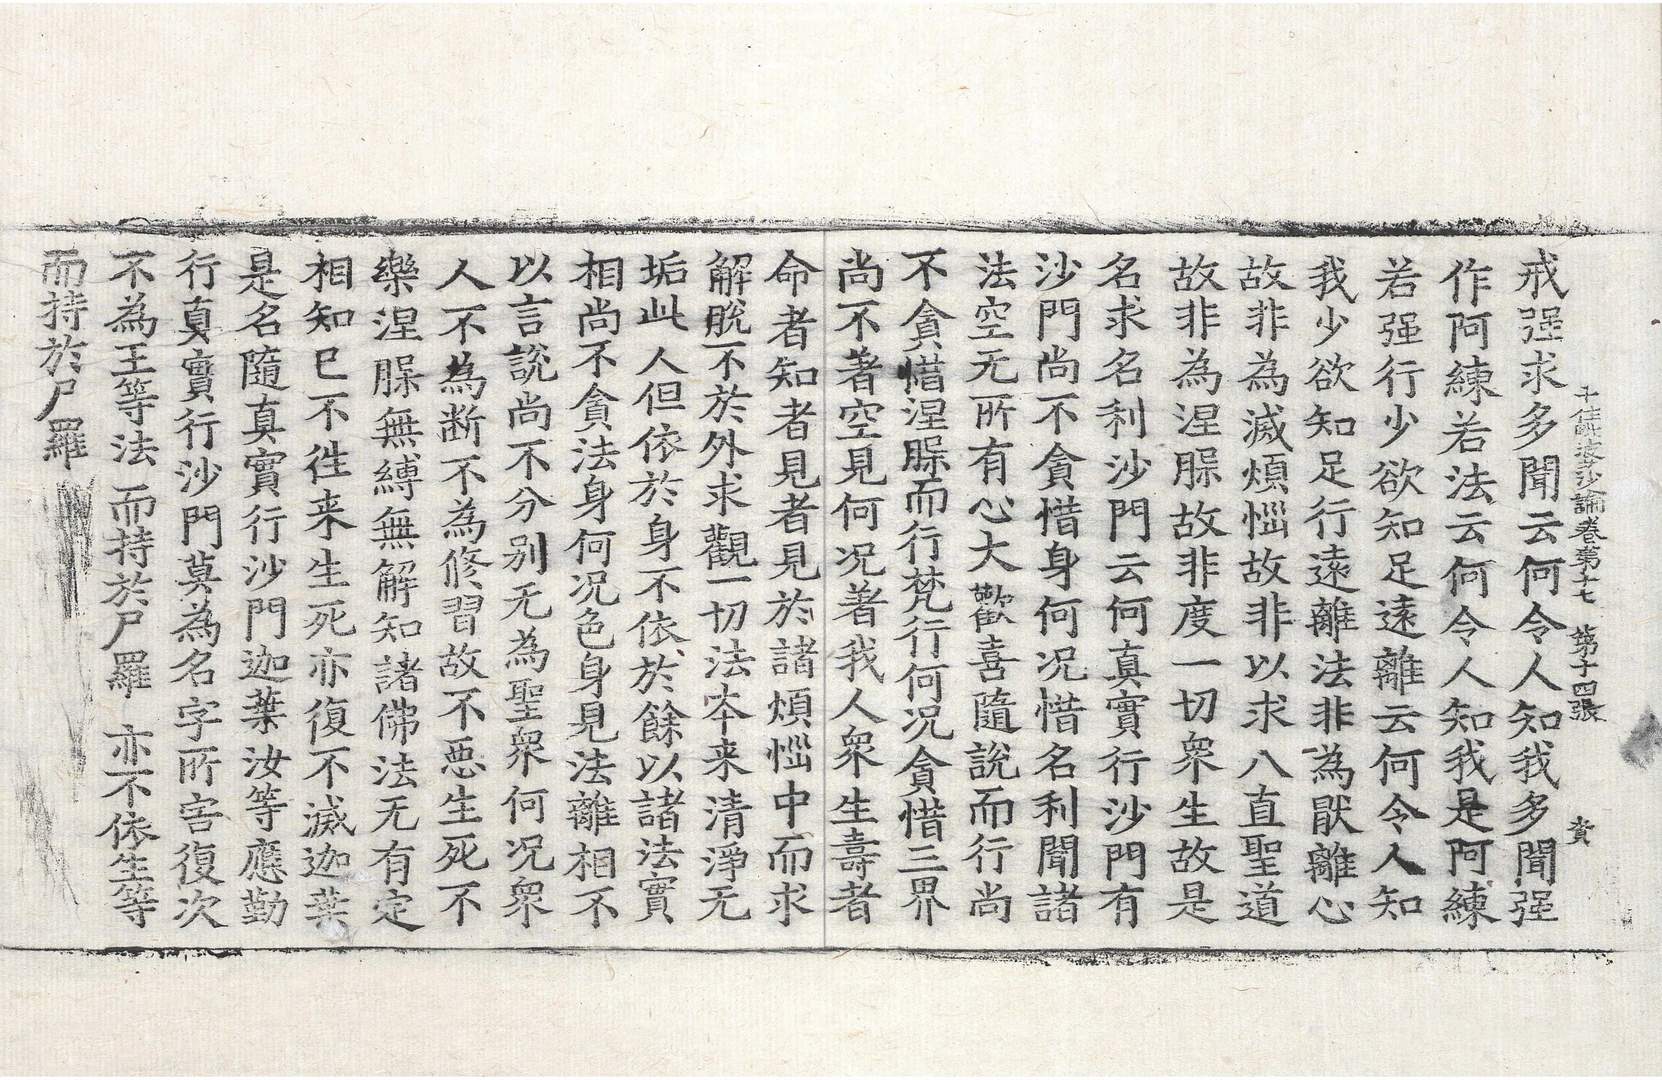 十住毗婆沙論卷第十七 第十四張 資
戒强求多聞云何令人知我多聞强
作阿練若法云何令人知我是阿練
若强行少欲知足遠離云何令人知
我少欲知足行遠離法非為猒離心
故非為滅煩惱故非以求八直聖道
故非為涅槃故非度一切衆生故是
名求名利沙門云何真實行沙門有
沙門尚不貪惜身何况惜名利聞諸
法空无所有心大歡喜隨說而行尚
不貪惜涅槃而行梵行何况貪惜三界
尚不著空見何况著我人衆生壽者
命者知者見者見於諸煩惱中而求
解脫不於外求觀一切法夲来清淨无
垢此人但依於身不依於餘以諸法實
相尚不貪法身何况色身見法離相不
以言說尚不分别无為聖衆何况衆
人不為断不為修習故不惡生死不
樂涅槃無縛無解知諸佛法无有定
相知已不徃来生死亦復不滅迦葉
是名隨真實行沙門迦葉汝等應勤
行真實行沙門莫為名字所害復次
不為王等法而持於尸羅亦不依生等
而持於尸羅